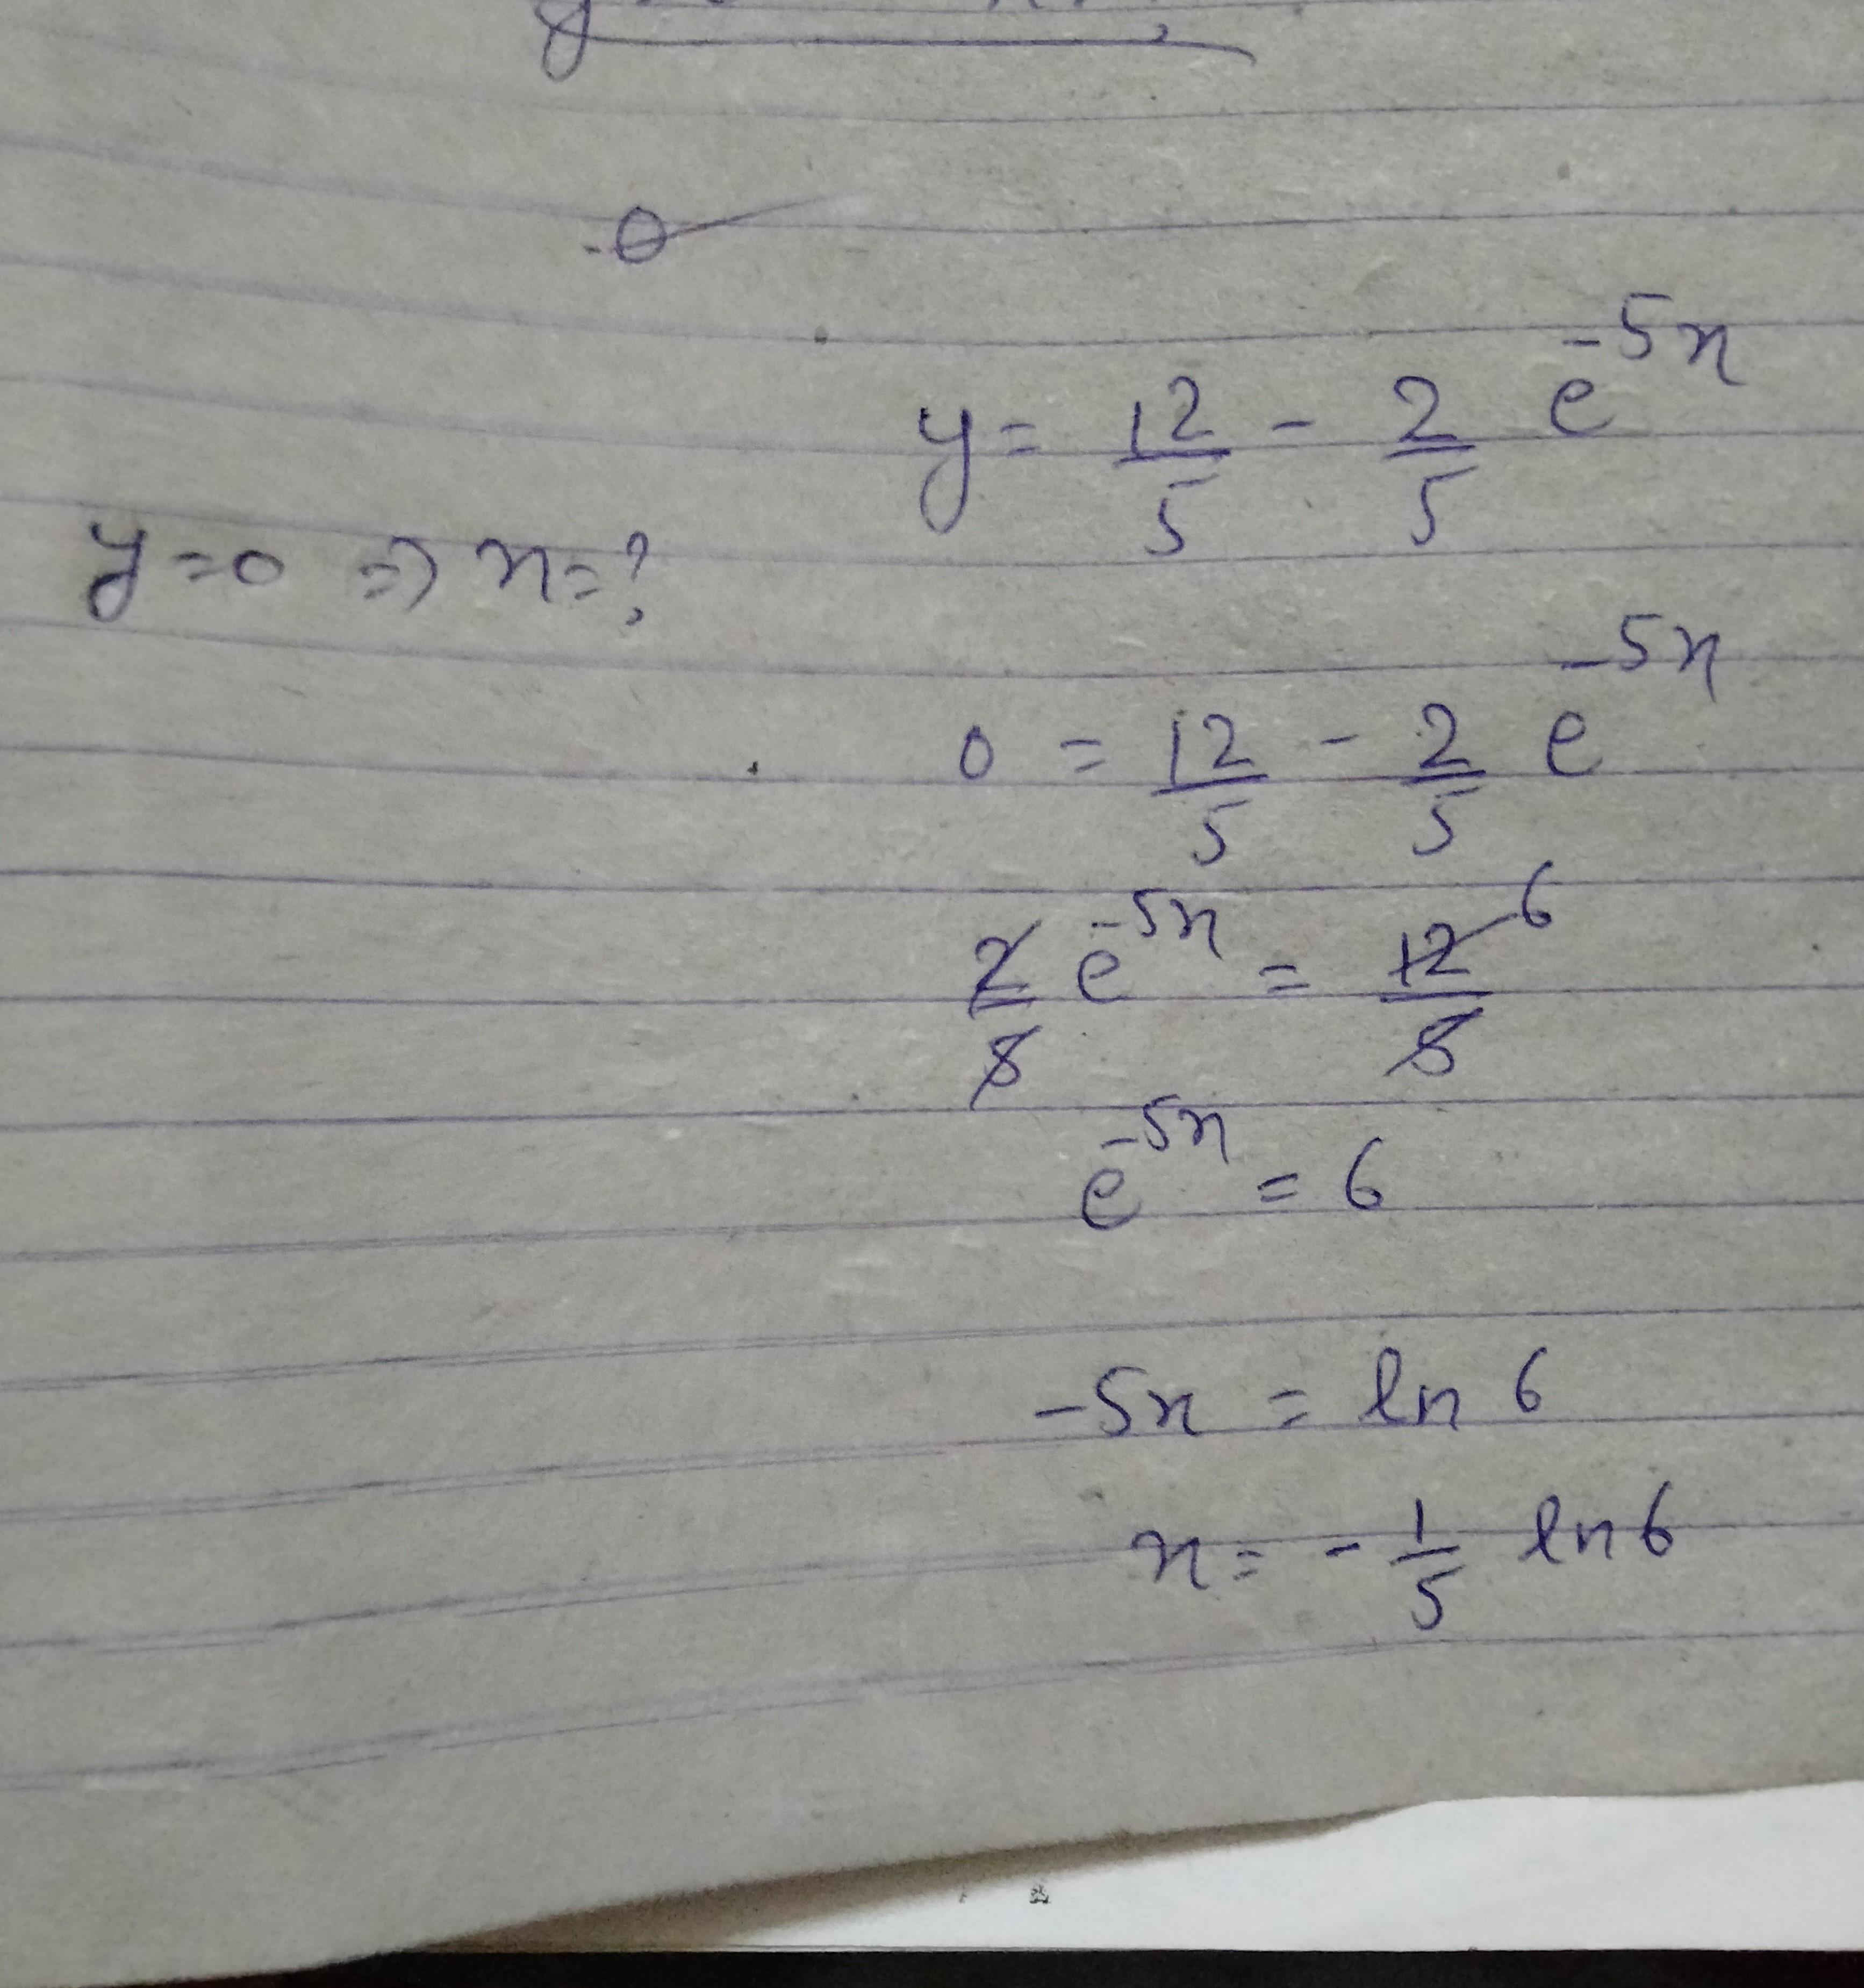 y = 12/5 - 2/5 e^-5x
y=0 => x=?
0 = 12/5 - 2/5 e^-5x
2/5 e^-5x = 12/5 6
e^-5x = 6
-5x = ln 6
x = - 1/5 ln 6